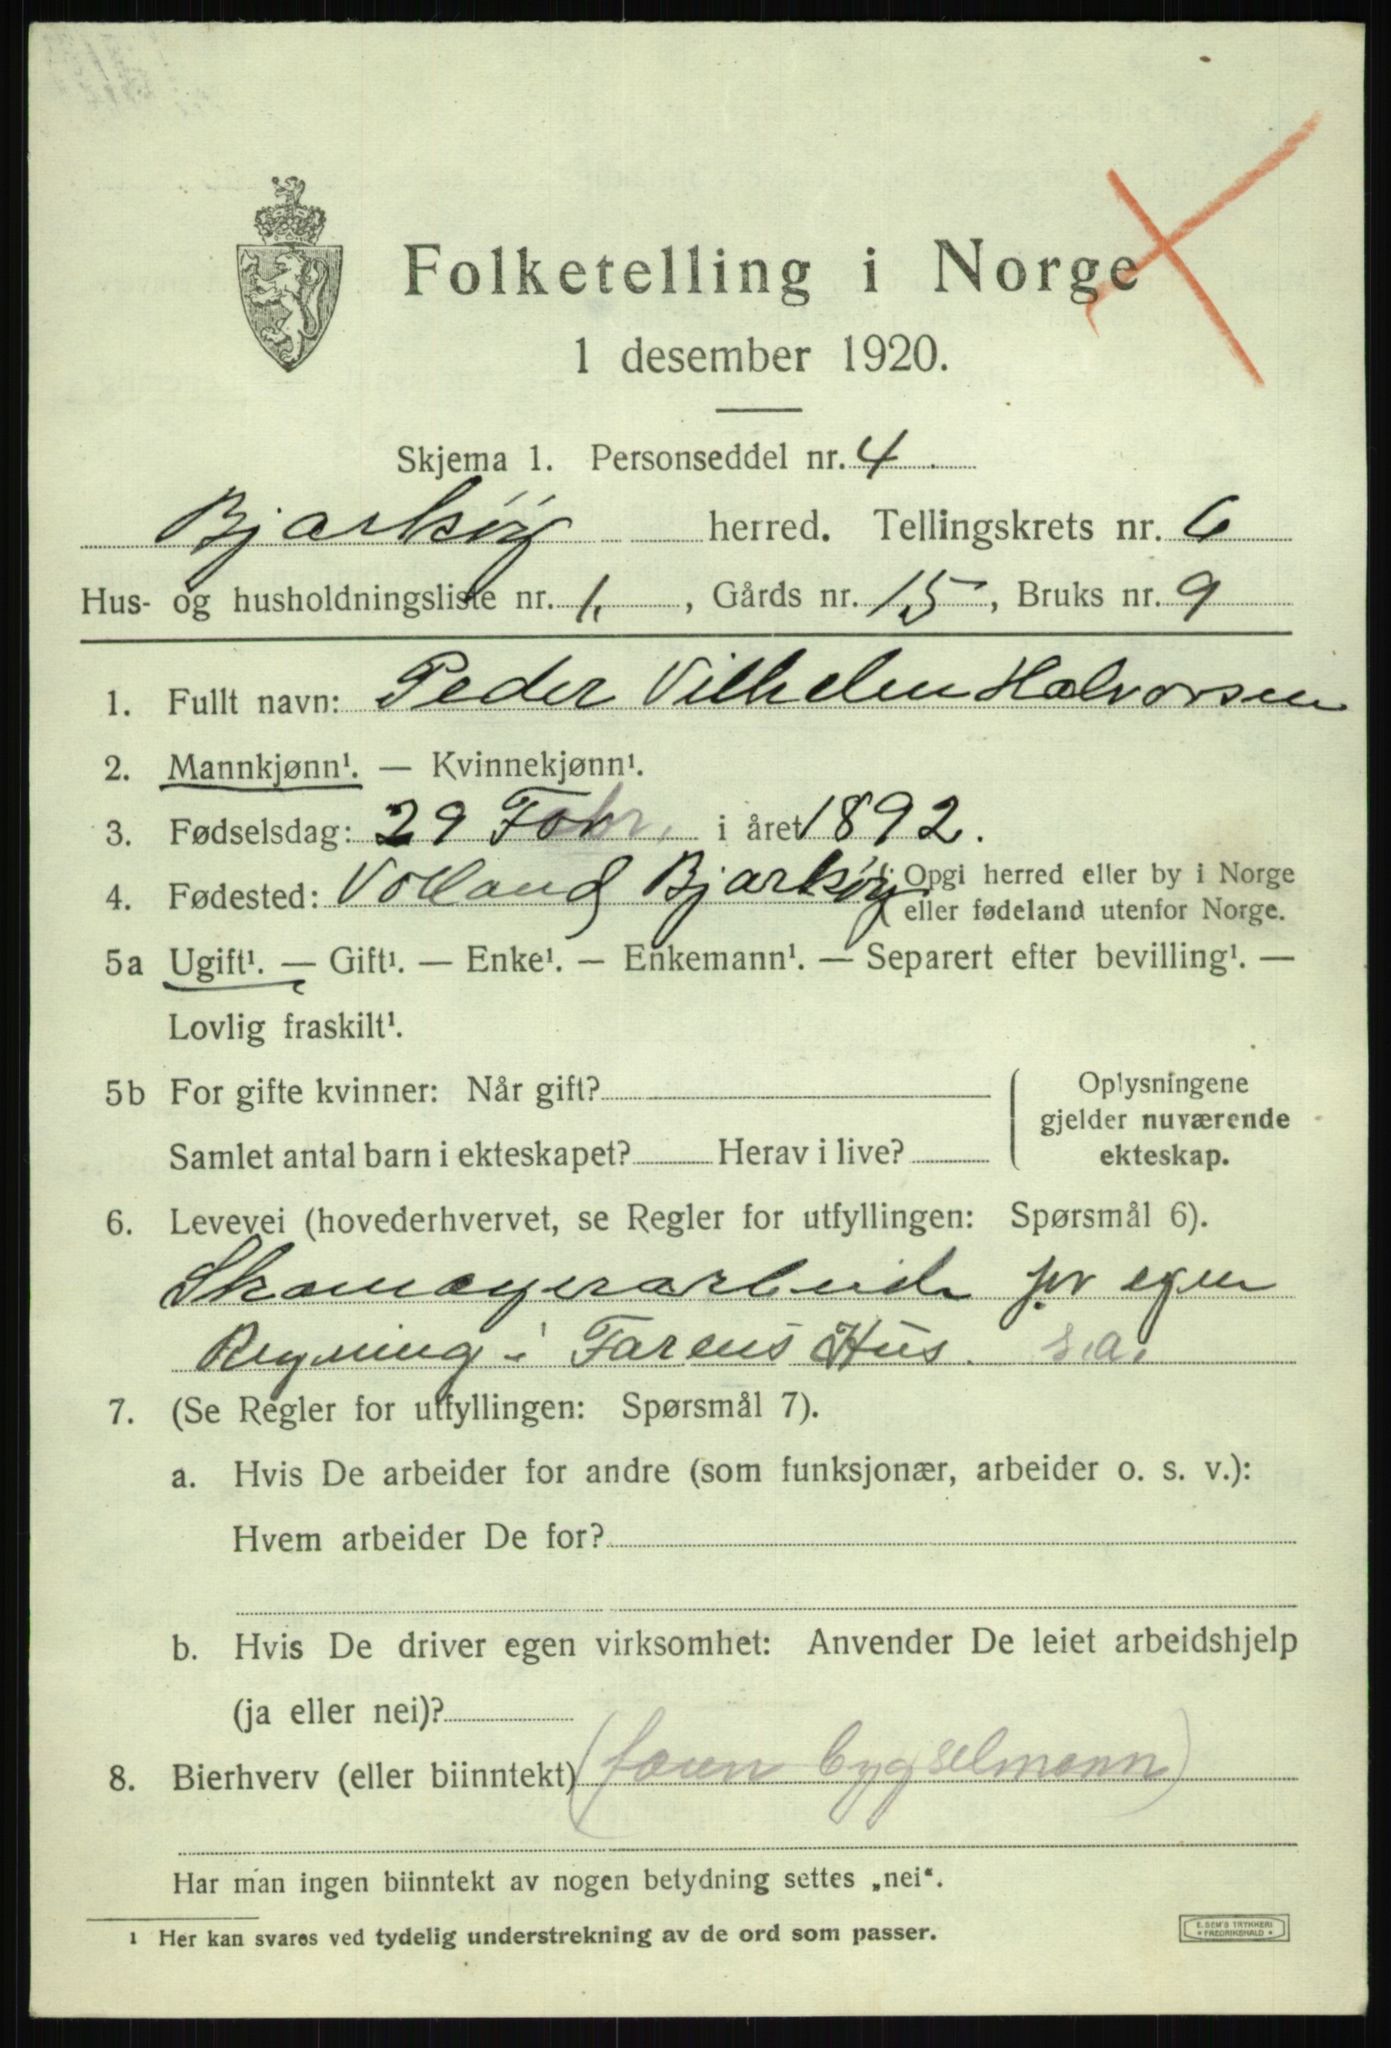 Folketelling i Norge
1 desember 1920.
Skjema 1. Personseddel nr. 4
Bjarkøy herred. Tellingskrets nr. 6
Hus- og husholdningsliste nr. 1, Gårds nr. 15, Bruks nr. 9
1. Fullt navn: Peder Vilhelm Halvorsen
2. Mannkjønn¹. — Kvinnekjønn¹.
3. Fødselsdag: 29 Febr. i året 1892.
4. Fødested: Volland Bjarkøy { Opgi herred eller by i Norge
eller fødeland utenfor Norge.
5a Ugift¹. — Gift¹. — Enke¹. — Enkemann¹. — Separert efter bevilling¹. —
Lovlig fraskilt¹.
5b For gifte kvinner: Når gift?
Samlet antal barn i ekteskapet? Herav i live?
Oplysningene
gjelder nuværende
ekteskap.
6. Levevei (hovederhvervet, se Regler for utfyllingen: Spørsmål 6).
Skomagerarbeide for egen
Regning i Farens Hus. s.a.
7. (Se Regler for utfyllingen: Spørsmål 7).
a. Hvis De arbeider for andre (som funksjonær, arbeider o. s. v.):
Hvem arbeider De for?
b. Hvis De driver egen virksomhet: Anvender De leiet arbeidshjelp
(ja eller nei)?
8. Bierhverv (eller biinntekt) (faren bygselmann)
Har man ingen biinntekt av nogen betydning settes „nei“.
¹ Her kan svares ved tydelig understrekning av de ord som passer.
E. SEM'S TRYKKERI
* FREDRIKSHALD *